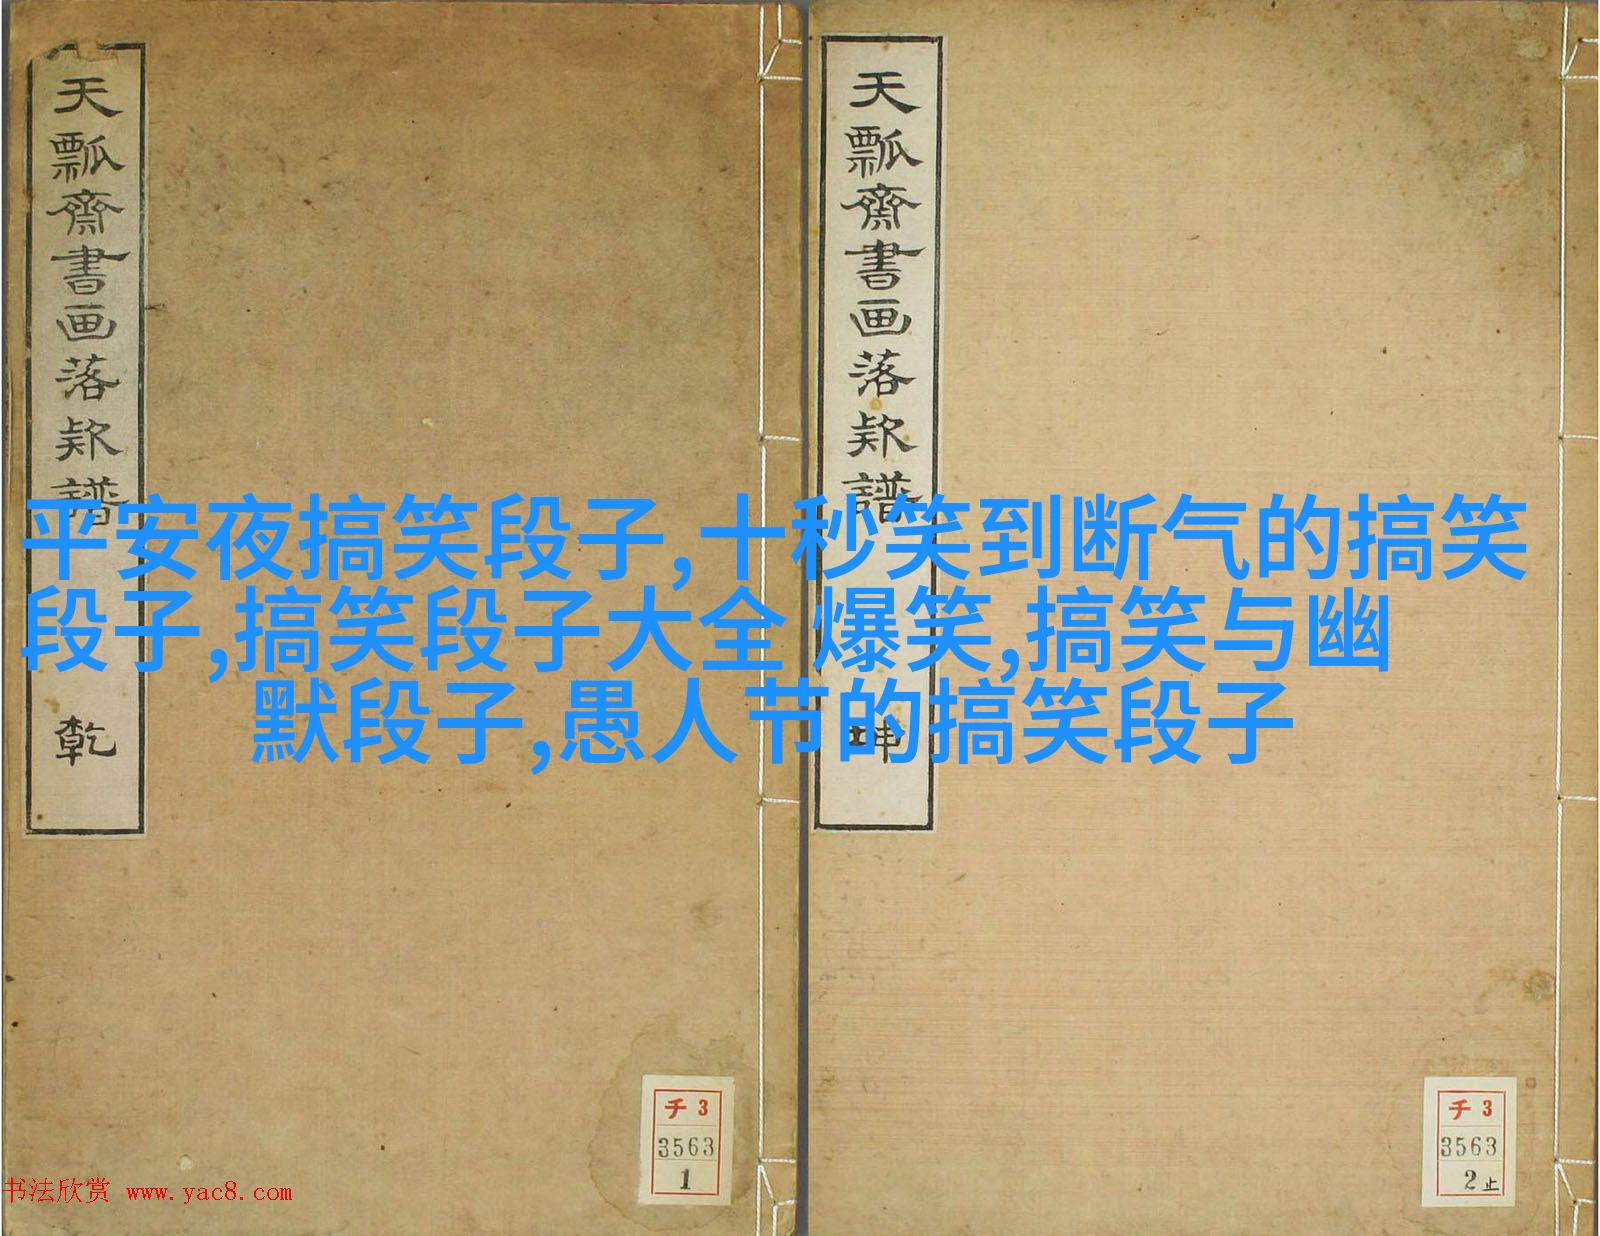 天瓢齋書画落款譜
乾
天瓢齋書画落款譜
坤
平安夜搞笑段子,十秒笑到断气的搞笑
段子,搞笑段子大全 爆笑,搞笑与幽
默段子,愚人节的搞笑段子
チ 3
3563
1
チ 3
3563
2止
书法欣赏 www.yac8.com